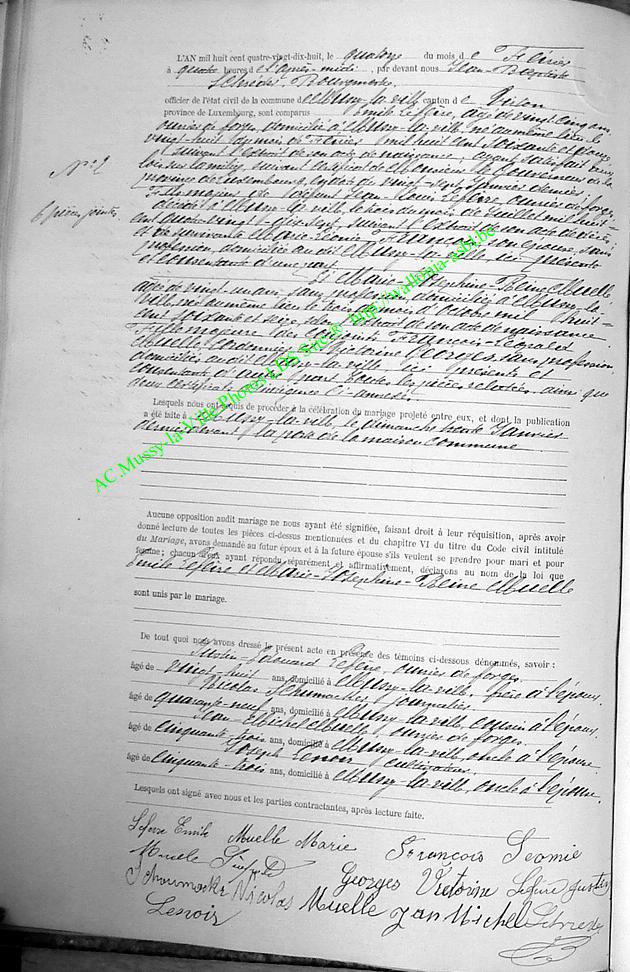 L'AN mil huit cent quatre-vingt-dix-huit, le quatorze du mois de Février
à quatre heures de l'après-midi, par devant nous Jean-Baptiste
Bourgmestre
officier de l'état civil de la commune de Mussy-la-ville canton de Virton
province de Luxembourg, sont comparus Emile Lefèvre, âgé de vingt cinq ans
ouvrier de forge, domicilié à Mussy-la-ville, né au même lieu le
vingt-huit du mois de Février mil huit cent soixante et
suivant l'extrait de son acte de naissance, ayant satisfait aux
lois sur la milice, suivant certificat de Monsieur le Gouverneur de la
province de Luxembourg, en date du vingt-sept Janvier dernier
Fils majeur de Jean-Louis Lefèvre ouvrier de forge
décédé à Mussy-la-ville, le trois du mois de Juillet mil huit
cent quatre-vingt suivant l'extrait de son acte de décès,
et de survivante Marie-Léonie François son épouse, sans
profession domiciliée au dit Mussy-la-ville ici présente
et consentante d'une part
Et Marie-Josephine-Reine Muelle
âgée de vingt un ans, sans profession, domiciliée à Mussy-la
ville, née au même lieu le trois du mois d'Octobre mil huit
cent soixante et seize, selon l'extrait de son acte de naissance
Fille majeure des conjoints François-Léopold
Muelle cordonnier et Victorine Georges, sans profession
domiciliés au dit Mussy-la-ville ici présents et
consentants d'autre part. Toutes les pièces relatées ainsi que
deux certificats ci-annexés
N° 2
6 pièces jointes
Lesquels nous ont requis de procéder à la célébration du mariage projeté entre eux, et dont la publication
a été faite à Mussy-la-ville, le dimanche trente Janvier
dernier devant la porte de la maison commune
Aucune opposition audit mariage ne nous ayant été signifiée, faisant droit à leur réquisition, après avoir
donné lecture de toutes les pièces ci-dessus mentionnées et du chapitre VI du titre du Code civil intitulé
du Mariage, avons demandé au futur époux et à la future épouse s'ils veulent se prendre pour mari et pour
femme; chacun d'eux ayant répondu séparément et affirmativement, déclarons au nom de la loi que
Emile Lefèvre et Marie-Josephine-Reine Muelle
sont unis par le mariage.
De tout quoi nous avons dressé le présent acte en présence des témoins ci-dessous dénommés, savoir :
Edouard Lefèvre, ouvrier de forges
âgé de vingt-huit ans, domicilié à Mussy-la-ville, frère à l'époux.
Nicolas Schumacker journalier
âgé de quarante-neuf ans, domicilié à Mussy-la-ville, cousin à l'époux.
Jean-Michel Muelle, ouvrier de forges
âgé de cinquante trois ans, domicilié à Mussy-la-ville, oncle à l'épouse.
Joseph Lenoir, cultivateur
âgé de cinquante-trois ans, domicilié à Mussy-la-ville, oncle à l'épouse.
Lesquels ont signé avec nous et les parties contractantes, après lecture faite.
Lefevre Emile Muelle Marie François Léonie
Muelle Léopold Georges Victorine Lefevre Gustave
Schoumacker Nicolas Muelle Jan Michel
Lenoir
AC.Mussy-la-Ville Photos LDS Stree® http://wallonia-asbl.be